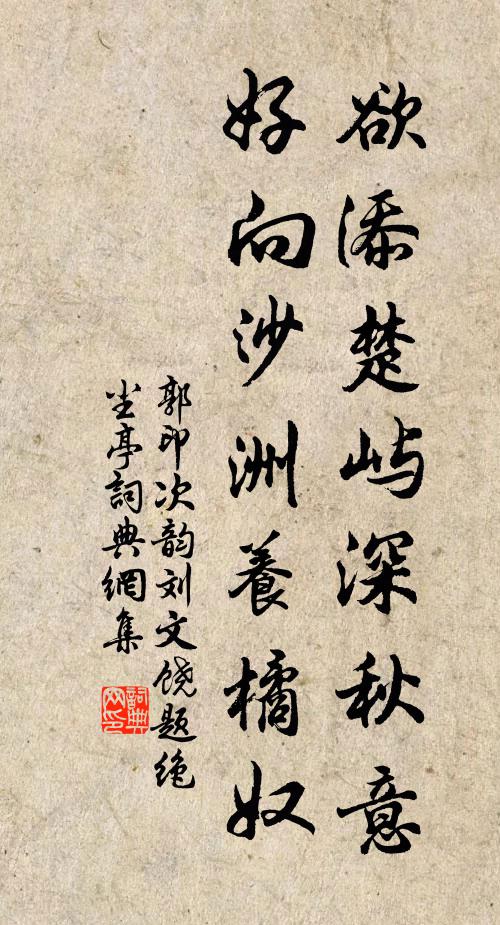 欲添楚屿深秋意
好向沙洲養橘奴
郭印次韵刘文饶题绝
尘亭詞典網集
詞典
网印